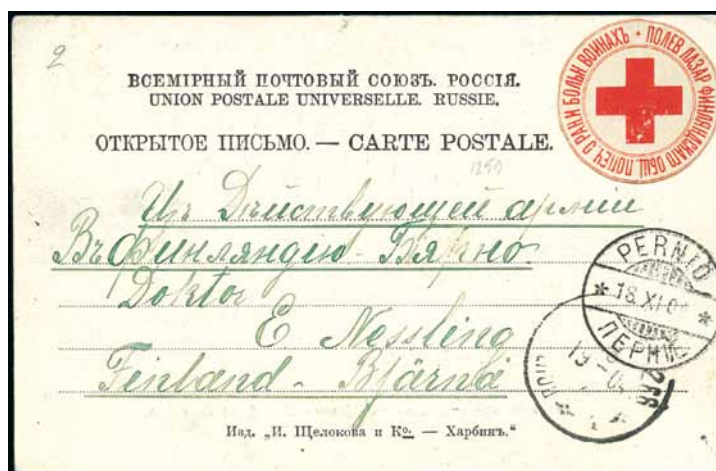 2
ВСЕМІРНЫЙ ПОЧТОВЫЙ СОЮЗЪ. РОССІЯ.
UNION POSTALE UNIVERSELLE. RUSSIE.
ОТКРЫТОЕ ПИСЬМО. — CARTE POSTALE.
ПОЛЕВ ЛАЗАР ФИНЛЯНДСКАГО ОБЩ. ПОПЕЧ О РАН И БОЛЬН ВОИНАХЪ
1250
Изъ Дѣйствующей арміи
Въ Финляндію - Бярно
Doktor
E Nessling
Finland - Bjärnå
PERNIÖ
18.XI.0
ПЕРНІЕ
19
Изд. „И. Щелокова и Ко. — Харбинъ."